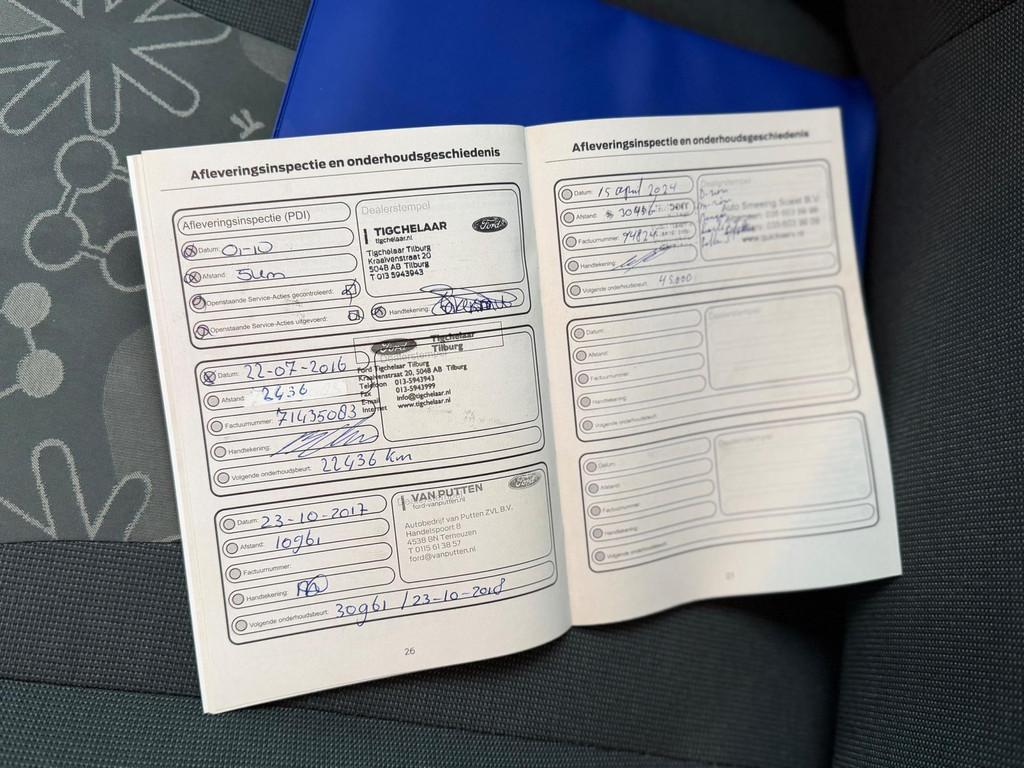 Afleveringsinspectie en onderhoudsgeschiedenis
Afleveringsinspectie (PDI)
Datum: 01-10
Afstand: 5km
Openstaande Service-Acties gecontroleerd:
Openstaande Service-Acties uitgevoerd:
Dealerstempel
TIGCHELAAR
tigchelaar.nl
Ford
Tigchelaar Tilburg
Kraaivenstraat 20
5048 AB Tilburg
T 013 5943943
Handtekening:
Datum: 22-07-2016
Afstand: 2436
Factuurnummer: 71435083
Handtekening:
Volgende onderhoudsbeurt: 22436 km
Dealerstempel
Ford
Tigchelaar
Tilburg
Ford Tigchelaar Tilburg
Kraaivenstraat 20, 5048 AB Tilburg
Telefoon 013-5943943
Fax 013-5943999
E-mail info@tigchelaar.nl
Internet www.tigchelaar.nl
Datum: 23-10-2017
Afstand: 10961
Factuurnummer:
Handtekening:
Volgende onderhoudsbeurt: 30961 / 23-10-2018
VAN PUTTEN
ford-vanputten.nl
Ford
Autobedrijf van Putten ZVL B.V.
Handelspoort 8
4538 BN Terneuzen
T 0115 61 38 57
ford@vanputten.nl
26
Afleveringsinspectie en onderhoudsgeschiedenis
Datum: 15 april 2024
Afstand: 30456
Factuurnummer: 94824
Handtekening:
Volgende onderhoudsbeurt: 45000
Dealerstempel
Auto Smeering Soest B.V.
Datum:
Afstand:
Factuurnummer:
Handtekening:
Volgende onderhoudsbeurt:
Dealerstempel
Datum:
Afstand:
Factuurnummer:
Handtekening:
Volgende onderhoudsbeurt:
Dealerstempel